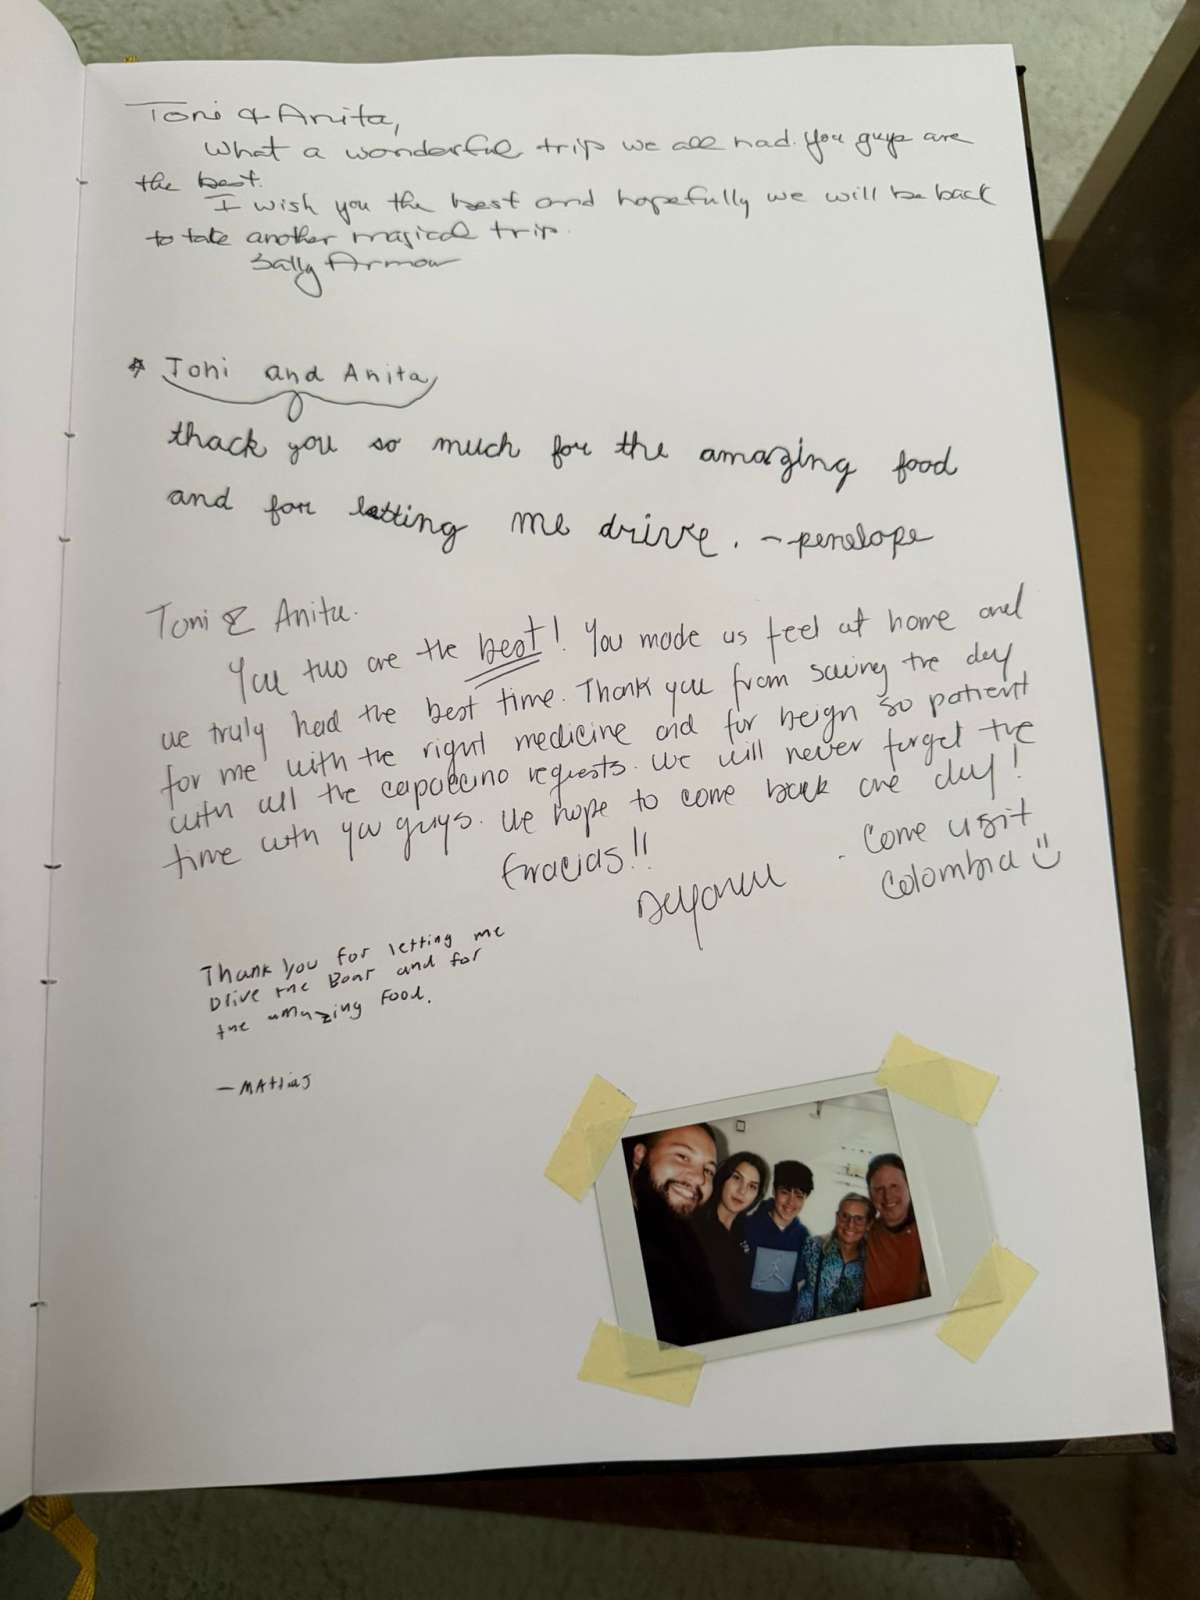 Toni & Anita,
What a wonderful trip we all had. You guys are
the best.
I wish you the best and hopefully we will be back
to take another magical trip.
Sally Armour
* Toni and Anita,
thack you so much for the amazing food
and for letting me drive. - penelope
Toni & Anita.
You two are the best! You made us feel at home and
we truly had the best time. Thank you from saving the day
for me with the right medicine and for beign so patient
with all the capuccino requests. We will never forget the
time with you guys. We hope to come back one day!
Gracias!!
- Come visit
Colombia
Thank you for letting me
Drive the Boat and for
the amazing Food.
- Mattias